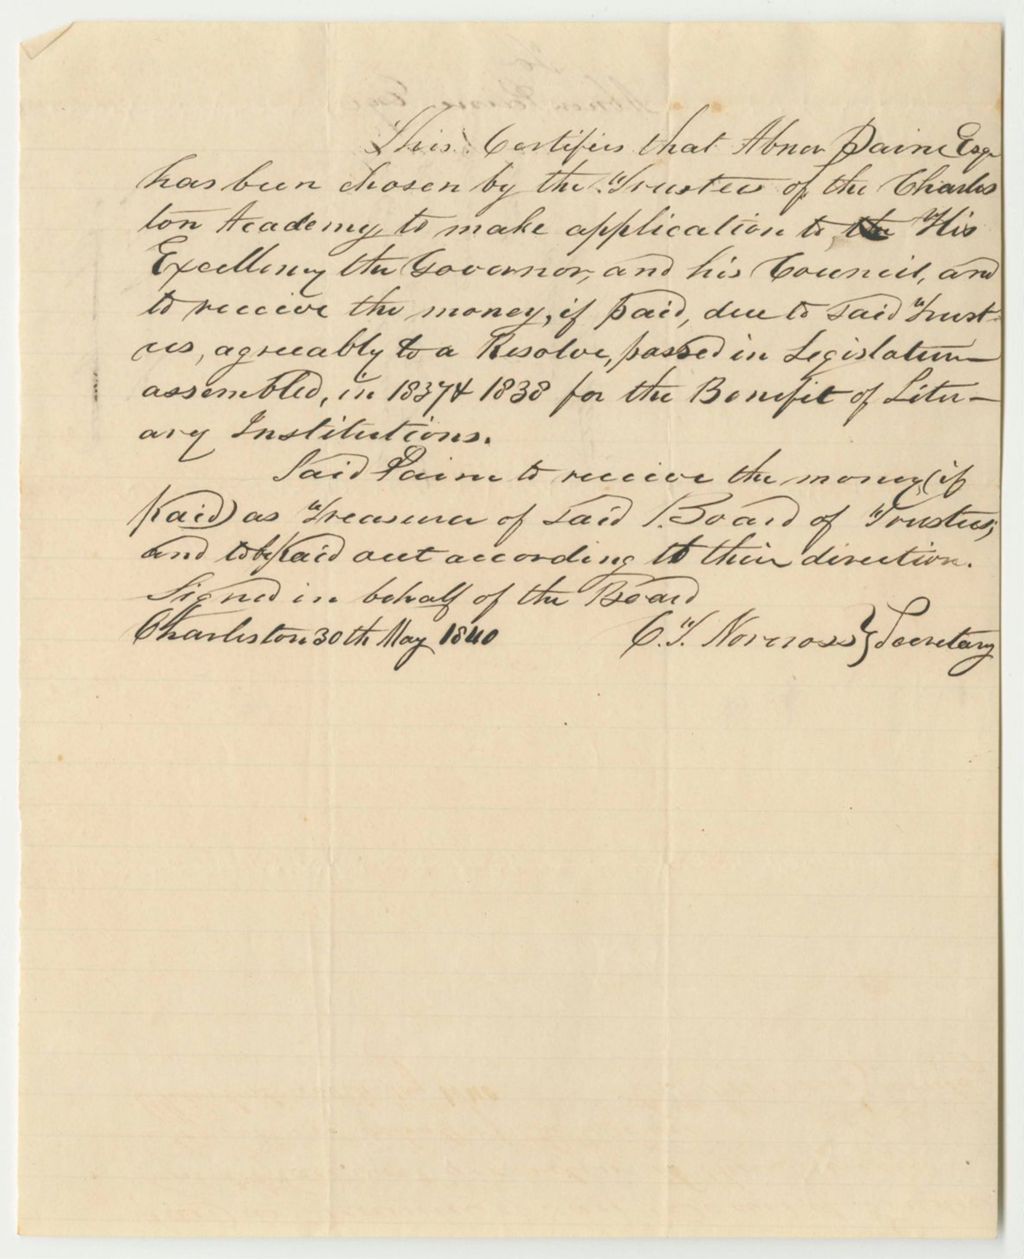 This Certifies that Abner Paine Esqr
has been chosen by the Trustees of the Charles
ton Academy to make application to His
Excellency the Governor, and his Council, and
to receive the money, if paid, due to said Trust-
ees, agreeably to a Resolve, passed in Legislature
assembled, in 1837 & 1838 for the Benefit of Liter-
ary Institutions.
Said Paine to receive the money (if
paid) as Treasurer of said Board of Trustees,
and to be paid out according to their direction.
Signed in behalf of the Board
Charleston 30th May 1840 C. T. Norcross } Secretary